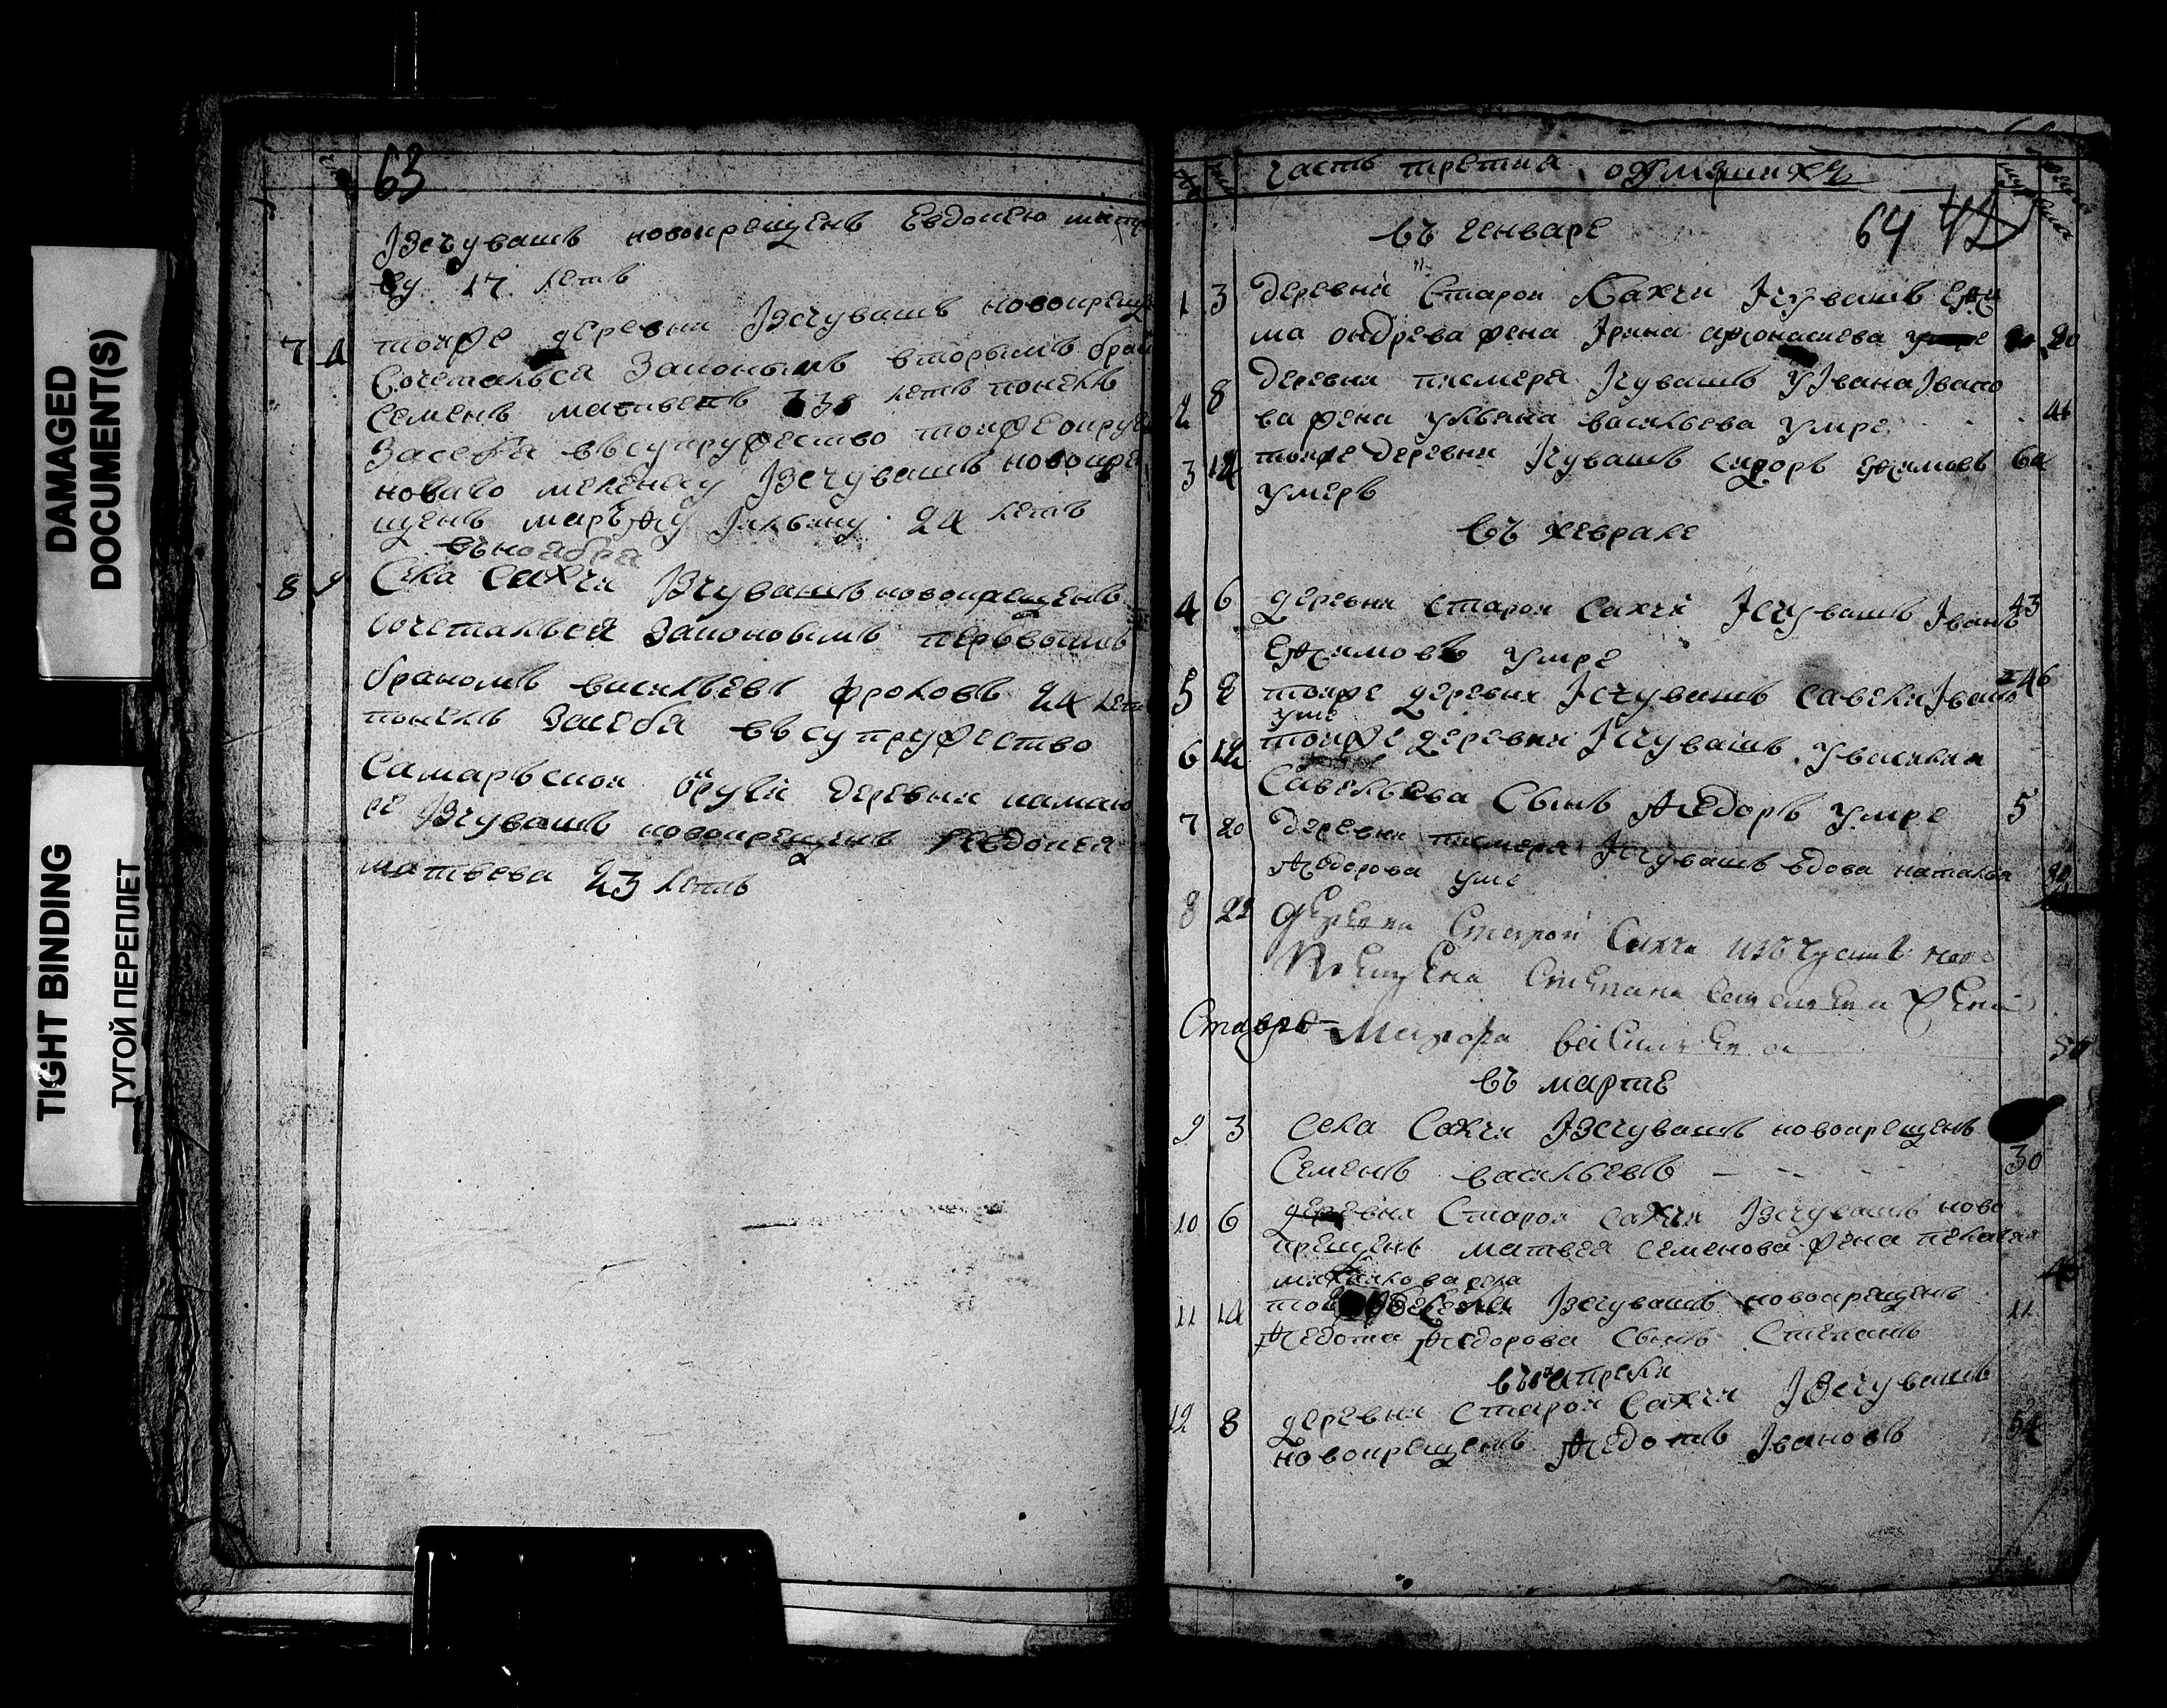 DAMAGED
DOCUMENT(S)
TIGHT BINDING
ТУГОЙ ПЕРЕПЛЕТ
63
Iзчувашъ новокрещенъ Евдокею
ву 17 летъ
7 4 тоиже деревни Iзчувашъ новокрещ
Сочеталься законымъ вторымъ брак
Семенъ матвеевъ 38 летъ понелъ
Засебя въсупружество тоиже округи
новаго Iзчувашъ новокре
щенъ марѳу 24 летъ
въ ноября
8 9 Села Сахчи Iзчувашъ новокрещенъ
сочеталься Законовымъ первовымъ
бракомъ василеи фроловъ 24 лет
понелъ Засебя въсупружество
Самарьскои округи деревни
Iзчувашъ новокрещенъ Евдокея
матвеева 23 летъ
часть третия оумершихъ
въ генваре
64 42
1 3 деревни Старои Сахчи Iчувашъ Еѳи
ма ондрева жена Iрина афонасиева 20
2 8 деревни писмеря Iчувашъ У Iвана Iвано
ва жена ульяна васильева умре 41
3 12 тоиже деревни Iчувашъ сидоръ еѳимовъ 60
умеръ
въ хеврале
4 6 деревни старои Сахчи Iсчувашъ Iванъ 43
Еѳимовъ умре
5 8 тоиже деревни Iсчувашъ савели Iвань 46
уме
6 12 тоиже деревни Iсчувашъ Увасилия
Савельева Сынъ Ѳедоръ умре 5
7 20 деревни писмеря Iсчувашъ вдова наталья
Ѳедорова уме
8 22 деревни Старой Сахчи изъ чувашъ ново
крещена Степана жена
васильева 50
въ марте
9 3 Села Сахчи Iзчувашъ новокрещенъ
Семенъ васильевъ 30
10 6 деревни Старои сахчи Iзчувашъ ново
крещенъ матвея семенова жена пелагея
11 14 Iзчувашъ новокрещенъ 11
Ѳедота Ѳедорова Сынъ Степанъ
въ апреля
12 8 деревни старои Сахчи Iзчувашъ
новокрещенъ Ѳедотъ Iвановъ 54